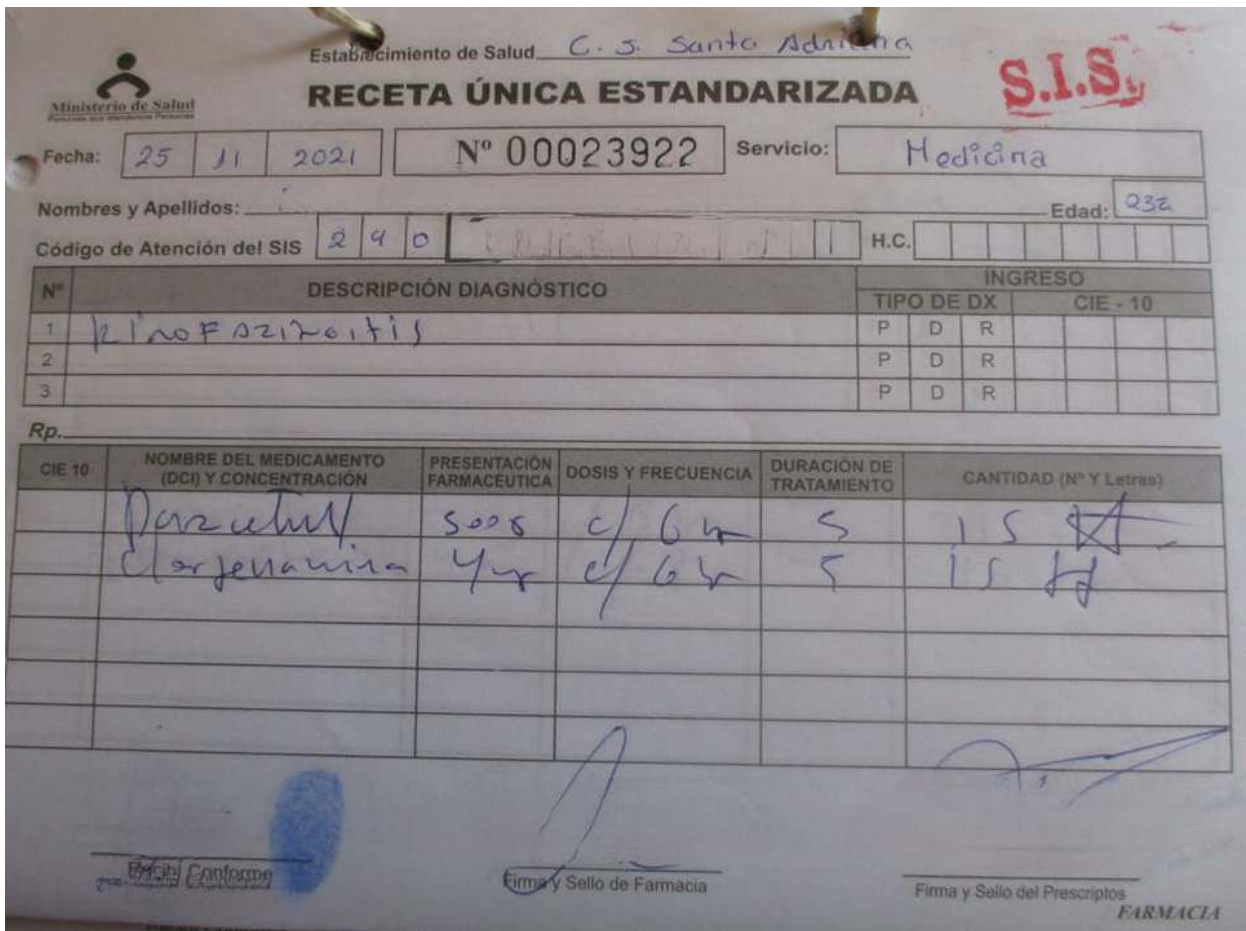 Establecimiento de Salud C. S. Santa Adriana
Ministerio de Salud
Personas que atendemos Personas
RECETA ÚNICA ESTANDARIZADA
S.I.S.
Fecha: 25 11 2021 Nº 00023922 Servicio: Medicina
Nombres y Apellidos: Edad: 23a
Código de Atención del SIS 290 H.C.
Nº DESCRIPCIÓN DIAGNÓSTICO INGRESO
TIPO DE DX CIE - 10
1 P D R
2 P D R
3 P D R
Rp.
CIE 10 NOMBRE DEL MEDICAMENTO (DCI) Y CONCENTRACIÓN PRESENTACIÓN FARMACÉUTICA DOSIS Y FRECUENCIA DURACIÓN DE TRATAMIENTO CANTIDAD (Nº Y Letras)
c/ 6 h 5 15
Clorfenamina 4 c/ 6 h 5 15
Recibí Conforme
Firma y Sello de Farmacia
Firma y Sello del Prescriptos
FARMACIA